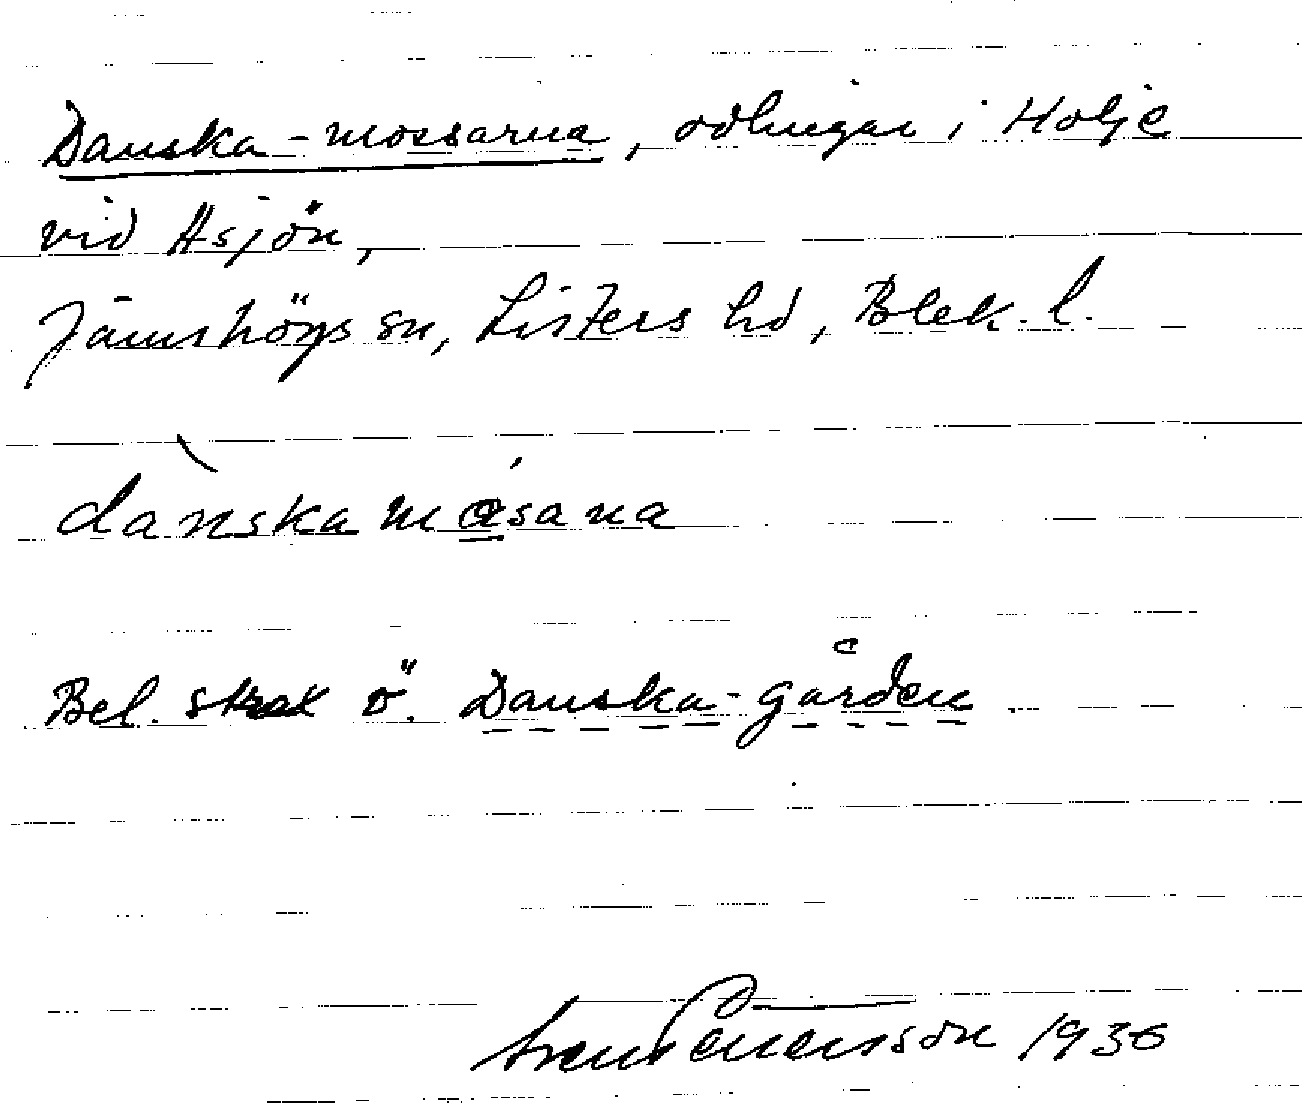 Danska-mossarna, odlingar i Holje
vid Asjön,
Jämshögs sn, Listers hd, Blek. l.
dànskamåsana
Bel. strax ö. Danska-gården
Sven Benson 1936